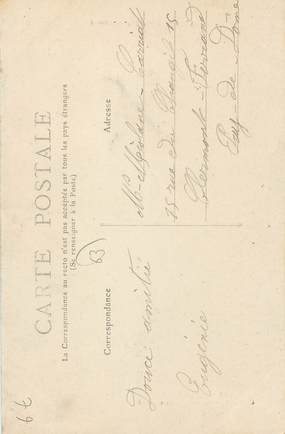 CARTE POSTALE
La Correspondance au recto n'est pas acceptée par tous les pays étrangers
(Se renseigner à la Poste)
Correspondance
Adresse
Douce amitié
Eugénie
15 rue du
Clermont-Ferrand
Puy de Dôme